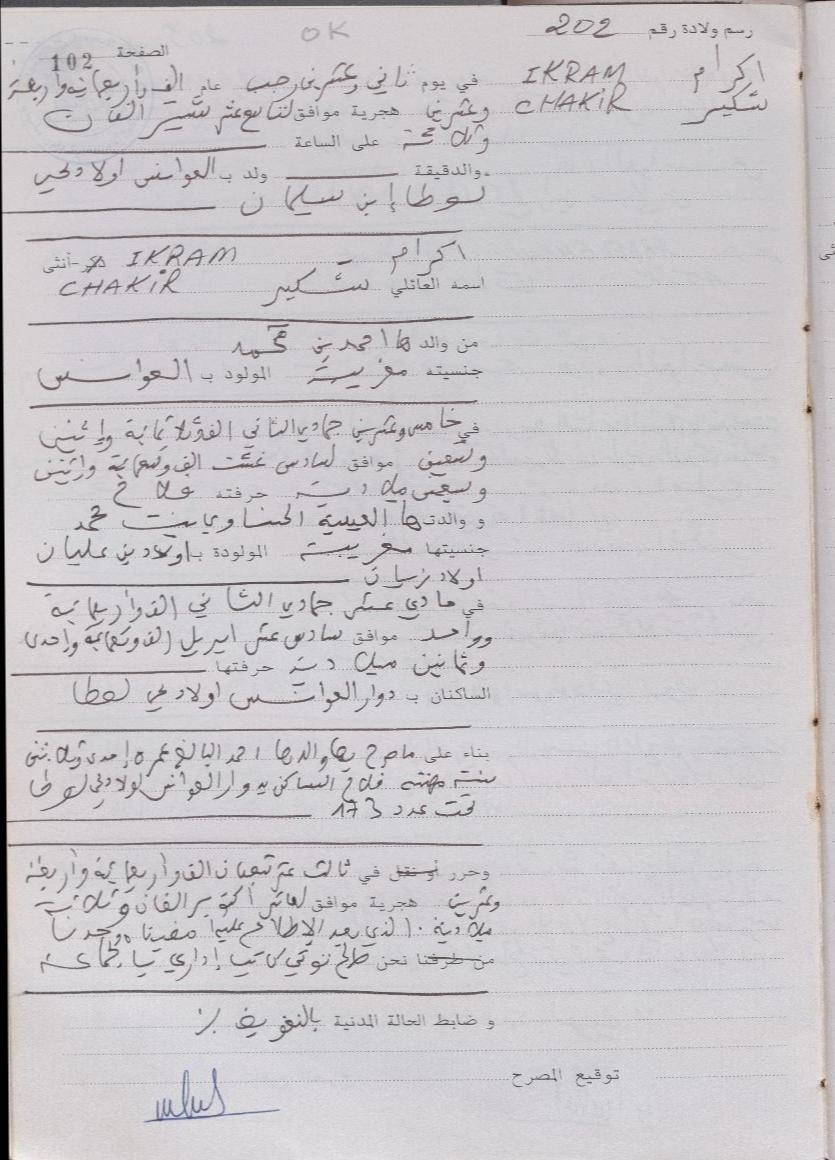 OK
رسم ولادة رقم 202
الصفحة 102
اكرام IKRAM
شكير CHAKIR
في يوم ثاني وعشرين رجب عام الف واربعمائة واربعة
وعشرين هجرية موافق لتاسع عشر شتنبر الفان
وثلاثة على الساعة
والدقيقة ولد ب العوانس اولاد يحي
لوطا ابن سليمان
اكرام IKRAM ذكر-أنثى
اسمه العائلي شكير CHAKIR
من والدها احمد بن محمد
جنسيته مغربية المولود ب العوانس
في خامس وعشرين جمادى الثاني الف وثلاثمائة واثنين
وتسعين موافق لسادس غشت الف وتسعمائة واثنين
وسبعين ميلادية حرفته فلاح
و والدتها العيدية الحساوي بنت محمد
جنسيتها مغربية المولودة ب اولاد بن عليان
اولاد زيان
في حادي عشر جمادى الثاني الف واربعمائة
وواحد موافق سادس عشر ابريل الف وتسعمائة واحدى
وثمانين ميلادية حرفتها
الساكنان ب دوار العوانس اولاد يحي لوطا
بناء على ما صرح به والدها احمد البالغ عمره إحدى وثلاثين
سنة مهنته فلاح الساكن بدوار العوانس اولاد يحي لوطا
تحت عدد 173
وحرر أو نقل في ثالث عشر شعبان الف واربعمائة واربعة
وعشرين هجرية موافق لعاشر أكتوبر الفان وثلاثة
ميلادية. الذي بعد الإطلاع عليه امضينا وحدنا
من طرفنا نحن صالح كاتب إداري
و ضابط الحالة المدنية بالتفويض
توقيع المصرح